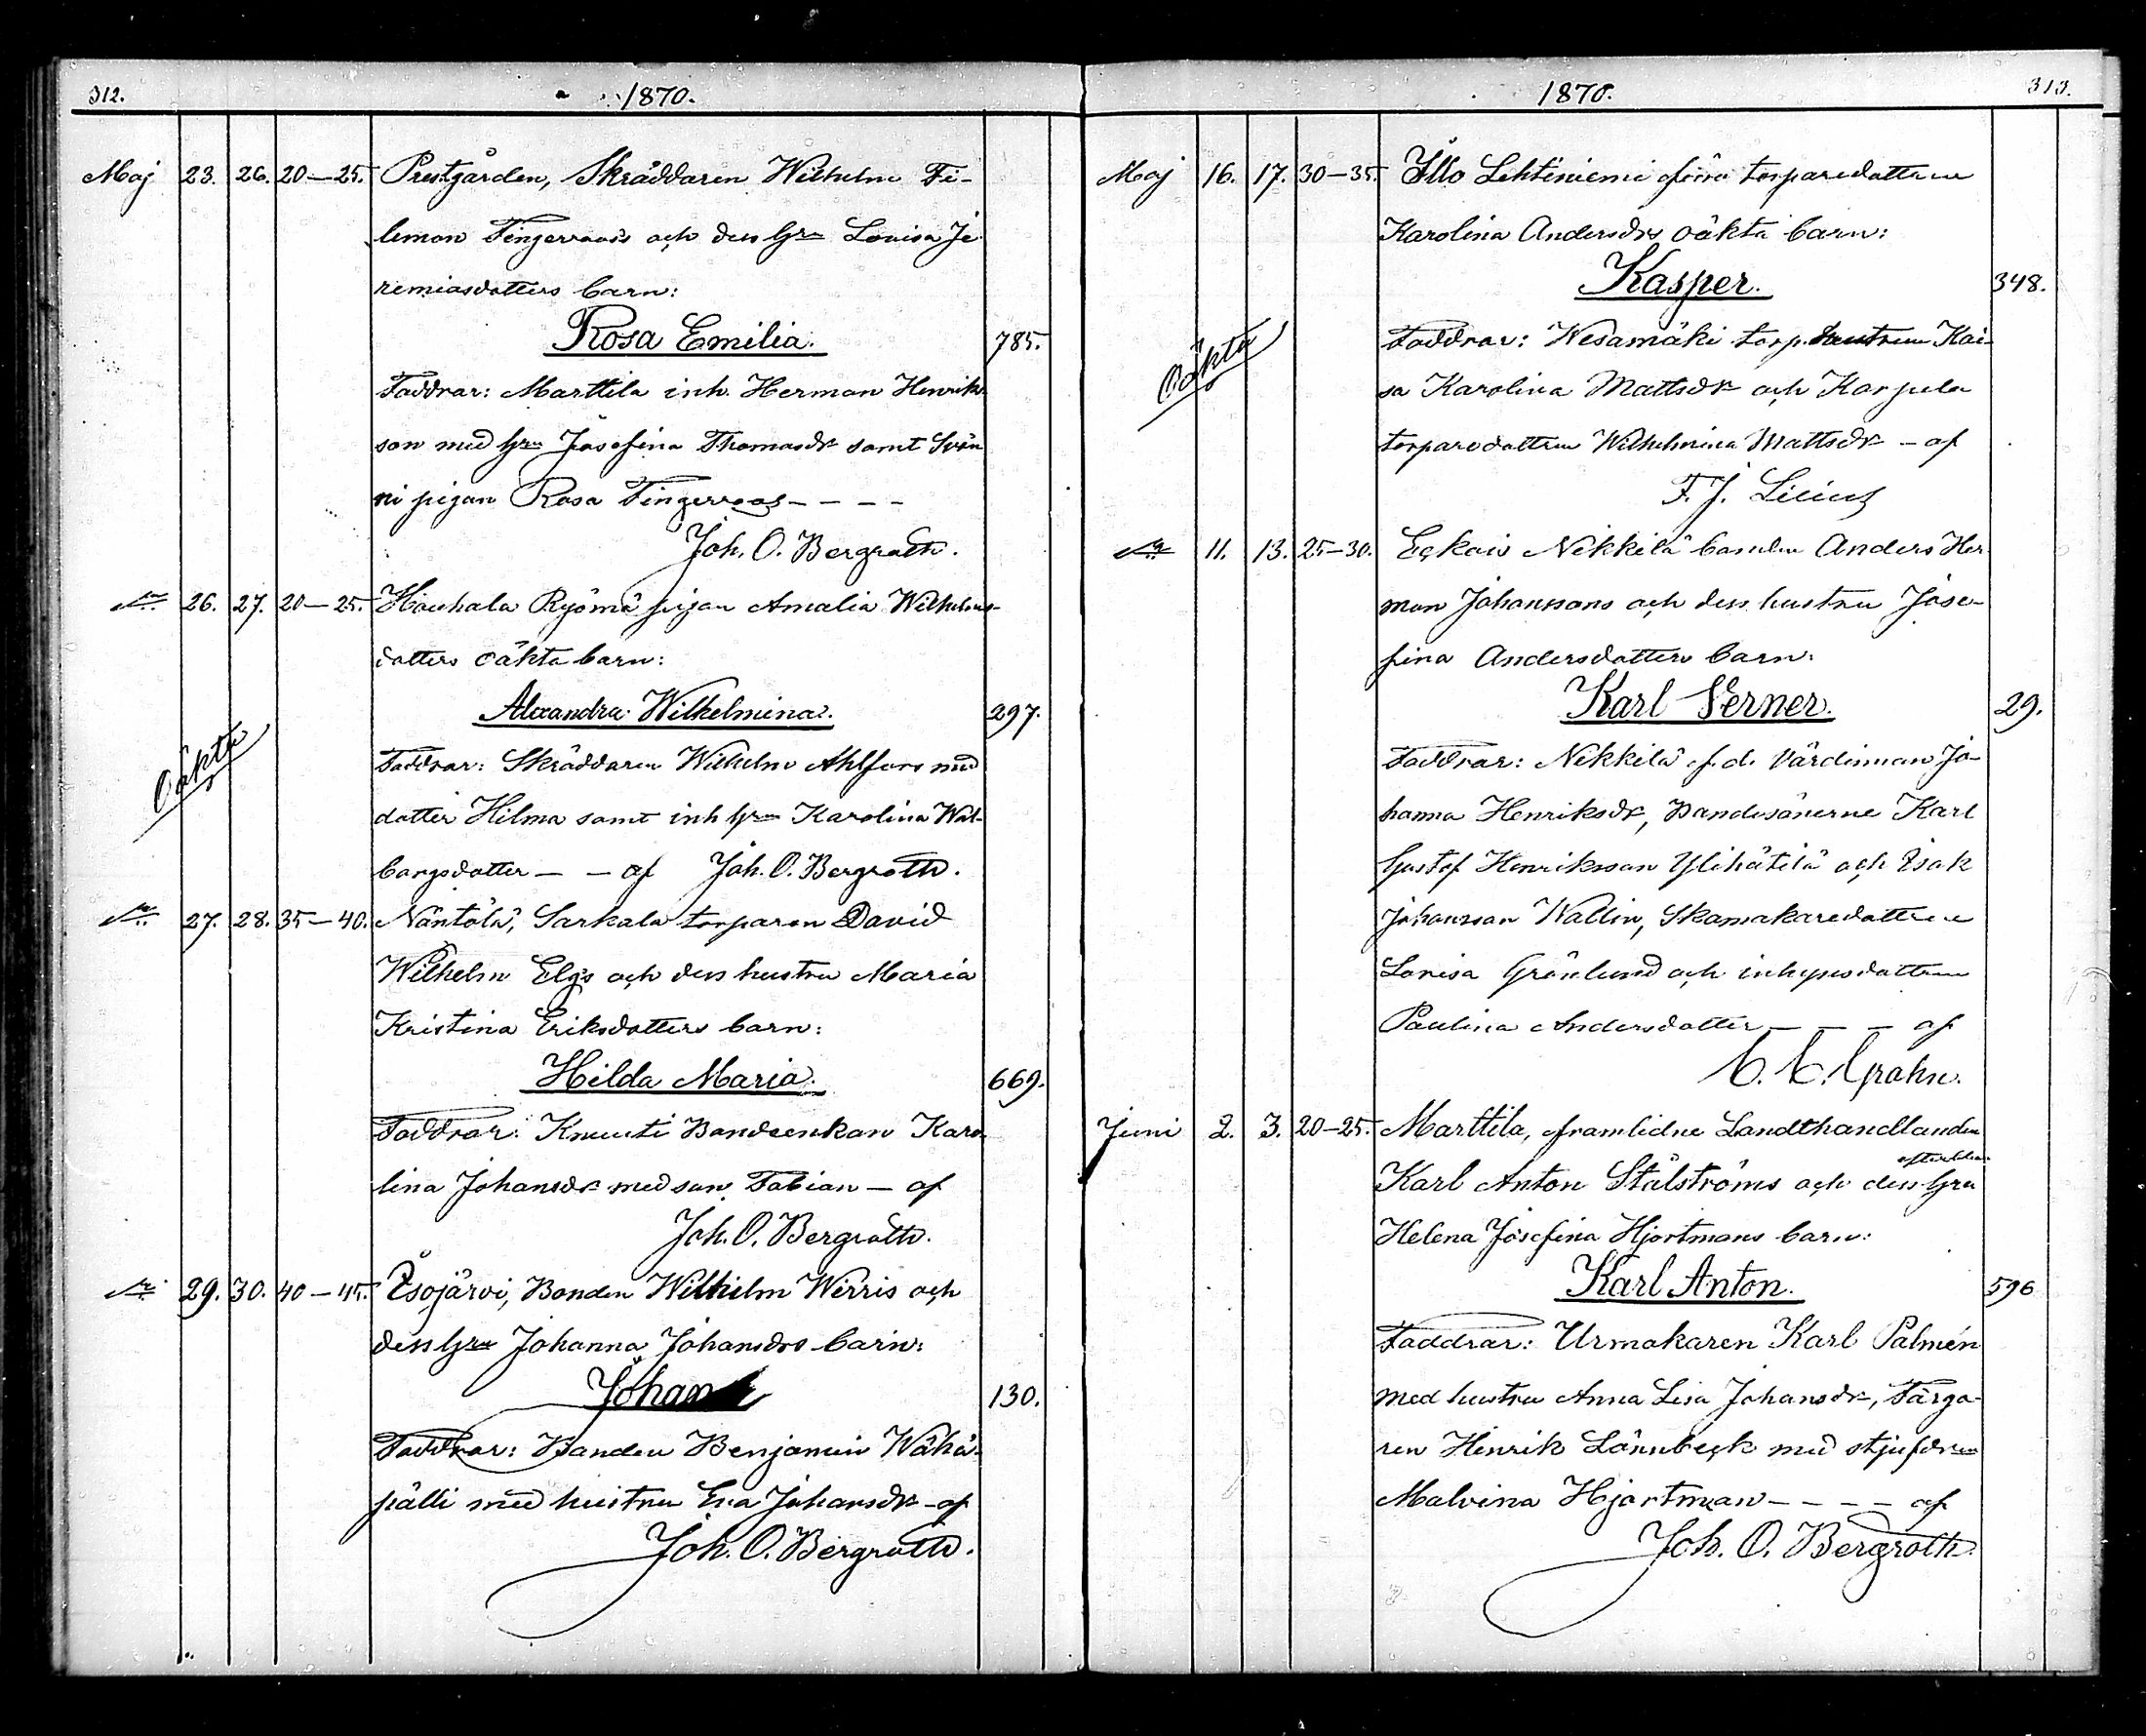 312.
1870.
Maj 23. 26. 20–25. Prestgården, Skräddaren Wilhelm Fi-
lemon Fingerroos och dess hru Lovisa Je-
remiasdotters barn:
Rosa Emilia. 785.
Faddrar: Marttila inh. Herman Henriks-
son med hru Josefina Thomasdr samt
ni pigan Rosa Fingerroos – – – –
Joh. O. Bergroth.
26. 27. 20–25. Hauhala Ryömä pigan Amalia Wilhelms-
dotters oäkta barn:
Alexandra Wilhelmina. 297.
Oäkta
Faddrar: Skräddaren Wilhelm Ahlfors med
dotter Hilma samt inh hru Karolina Wal-
borgsdotter – – af Joh. O. Bergroth.
27. 28. 35–40. Näntölä, Sarkala torparen David
Wilhelm Elgs och dess hustru Maria
Kristina Eriksdotters barn:
Hilda Maria. 669.
Faddrar: Knuuti Bondeenkan Karo-
lina Johansdr med son Fabian – af
Joh. O. Bergroth.
29. 30. 40–45. Isojärvi, Bonden Wilhelm Wirris och
dess hru Johanna Johansdrs barn:
Johan 130.
Faddrar: Bonden Benjamin Wähä-
pälli med hustru Eva Johansdr – af
Joh. O. Bergroth.
1870.
313.
Maj 16. 17. 30–35. Illo Lehtiniemi torparedottren
Karolina Andersdrs oäkta barn:
Kasper. 348.
Oäkta
Faddrar: Wesamäki torp.hustrun Kai-
sa Karolina Mattsdr och Karpela
torparedottren Wilhelmina Mattsdr – af
F. J. Lilius
11. 13. 25–30. Nikkilä bonden Anders Her-
man Johanssons och dess hustru Jose-
fina Andersdotters barn:
Karl Verner. 29.
Faddrar: Nikkilä f.d. värdinnan Jo-
hanna Henriksdr, Bondesönerne Karl
Gustaf Henriksson Ylihätilä och Isak
Johansson Wallin, Skomakaredottren
Lovisa Grönlund och inhysesdottren
Paulina Andersdotter – – – af
Grahn.
Juni 2. 3. 20–25. Marttila, framlidne Landthandlanden
Karl Anton Stålströms och dess efterlefv. hru
Helena Josefina Hjortmans barn:
Karl Anton. 596
Faddrar: Urmakaren Karl Palmén
med hustru Anna Lisa Johansdr, Färga-
ren Henrik Lönnbeck med stjufdrn
Malvina Hjortman – – – – af
Joh. O. Bergroth.